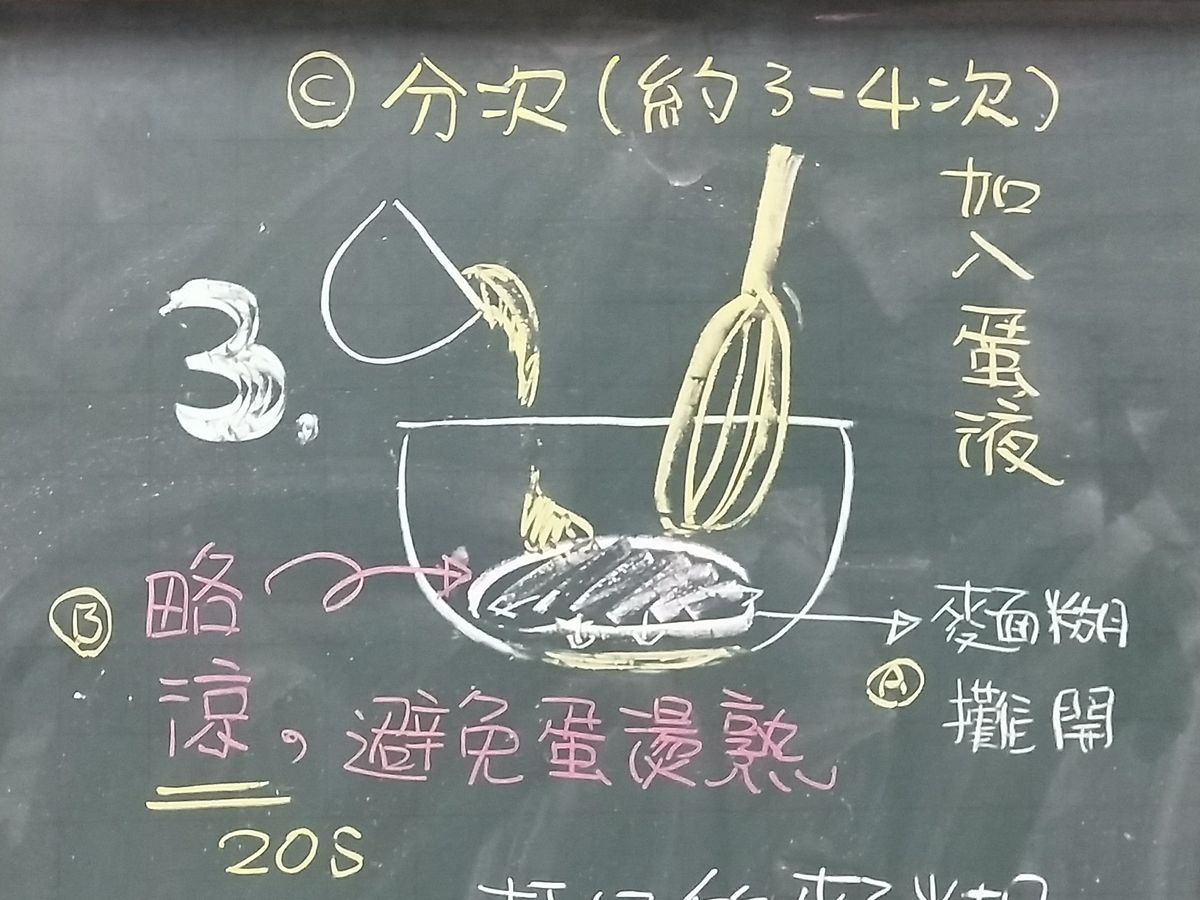 Ⓒ 分次(約3-4次)
加入蛋液
3.
Ⓑ 略涼,避免蛋燙熟
20S
麵糊
Ⓐ 攤開